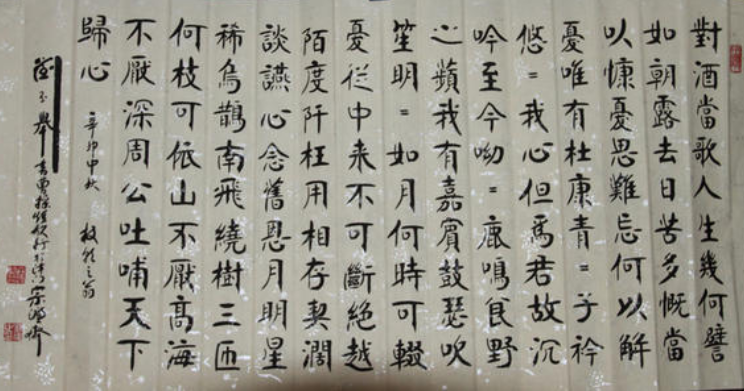 對酒當歌人生幾何譬
如朝露去日苦多慨當
以慷憂思難忘何以解
憂唯有杜康青=子衿
悠=我心但爲君故沉
吟至今呦=鹿鳴食野
之蘋我有嘉賓鼓瑟吹
笙明=如月何時可輟
憂從中来不可斷絕越
陌度阡枉用相存契濶
談讌心念舊恩月明星
稀烏鵲南飛繞樹三匝
何枝可依山不厭高海
不厭深周公吐哺天下
歸心
辛卯中秋 之翁
書曹操短歌行於